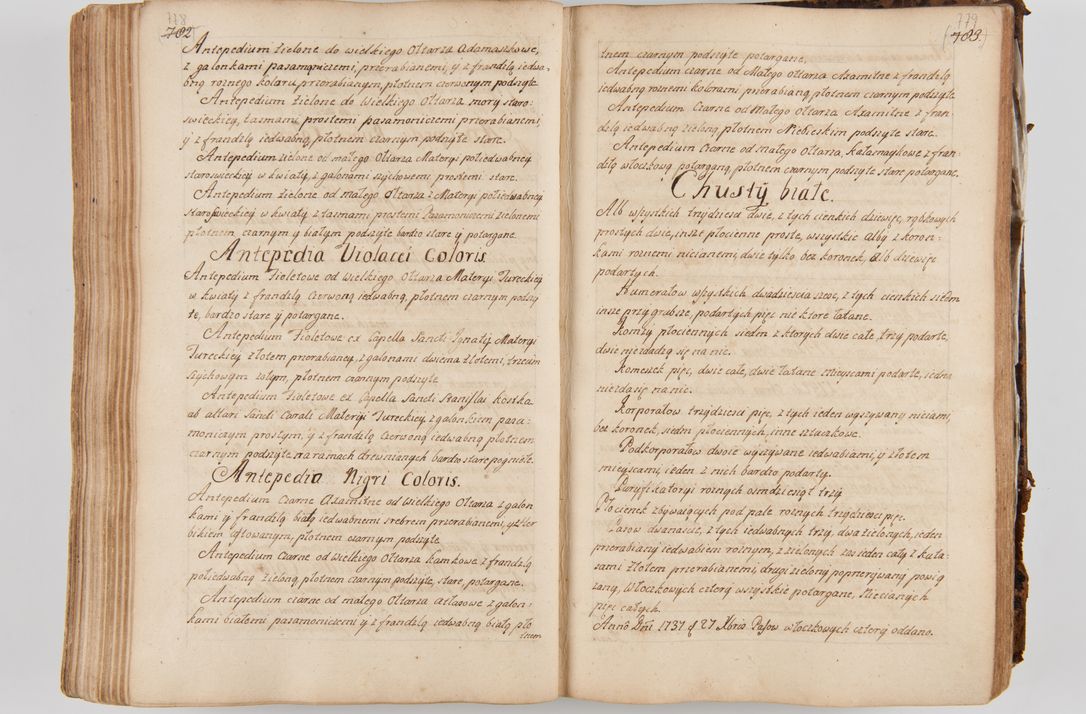 778
702
Antepedium zielone do wielkiego Ołtarza Adamaszkowe,
z galonkami pasamoniczemi, przerabianemi, y z frandzlą iedwa-
bną roznego koloru przerabianym, płotnem czerwonym podszyte
Antepedium zielone do Wielkiego Ołtarza mory staro-
swieckiey, tasmami prostemi pasamoniczemi przerabianemi,
y z frandzlą iedwabną, płotnem czarnym podszyte stare.
Antepedium zielone od małego Ołtarza Materyi połiedwabney
staroswieckiey w kwiaty, z galonami szychowemi prostemi stare.
Antepedium zielone od małego Ołtarza z Materyi połiedwabney
staroswieckiey w kwiaty z tasmami prostemi Pasamoniczemi zielonemi
płotnem czarnym y białym podszyte bardzo stare y potargane.
Antepedia Violacei Coloris.
Antepedium Fioletowe od Wielkiego Ołtarza Materyi Tureckiey
w kwiaty z frandzlą czerwoną iedwabną, płotnem czarnym podszy
te, bardzo stare y potargane.
Antepedium Fioletowe ex Capella Sancti Ignatij Materyi
Tureckiey złotem przerabianey, z galonami dwiema złotemi, trzecim
szychowym zołtym, płotnem czarnym podszyte
Antepedium Fioletowe ex Capella Sancti Stanislai Kostka
ab altari Sancti Caroli Materyi Tureckiey z galonkiem pasa-
moniczym prostym, y z frandzlą Czerwoną iedwabną płotnem
czarnym podszyte na ramach drewnianych bardzo stare pogniołe.
Antepedia Nigri Coloris.
Antepedium Czarne Axamitne od Wielkiego Ołtarza z galon
kami y frandzlą białą iedwabnemi srebrem przerabianemi, y z Her
bikiem haftowanym, płotnem czarnym podszyte
Antepedium Czarne od Wielkiego Ołtarza kamkowe z frandzlą
połiedwabną zieloną, płotnem czarnym podszyte, stare, potargane.
Antepedium czarne od małego Ołtarza atłasowe z galon-
kami białemi pasamoniczemi y z frandzlą iedwabną białą pło
tnem
779
703
tnem czarnym podszyte potargane.
Antepedium czarne od Małego Ołtarza Axamitne z frandzlą
iedwabną roznemi kolorami przerabianą płotnem czarnym podszyte
Antepedium Czarne od Małego Ołtarza Axamitne z fran-
dzlą iedwabną zieloną płotnem Niebieskim podszyte stare.
Antepedium Czarne od małego Ołtarza, kałamaykowe z fran-
dzlą włoczkową potarganą, płotnem czarnym podszyte stare potargane.
Chusty białe.
Alb wszystkich trzydziesci dwie, z tych cienkich dziewięc, rąbkowych
prostych dwie, insze płocienne proste, wszystkie alby z koron-
kami roznemi nicianemi, dwie tylko bez koronek, alb dziewięc
podartych.
Humerałow wszystkich dwadziescia szesc, z tych cienkich siedm
insze przygrubsze, podartych pięc niektore łatane.
Komży płociennych siedm z ktorych dwie całe trzy podarte,
dwie niezdadzą się na nic.
Komeszek pięc, dwie całe, dwie łatane mieyscami podarte, iedna
niezda się na nic.
Korporałow trzydziesci pięc, z tych ieden wyszywany niciami,
bez koronek, siedm płociennych, inne sztuczkowe.
Podkorporałow dwoie wyszywane iedwabiami, y złotem
mieyscami, ieden z nich bardzo podarty.
Puryfikatoryi roznych osmdziesiąt trzy
Płocienek zbywaiących pod pale roznych trzydziesci pięc.
Pasow dwanascie, z tych iedwabnych trzy, dwa zielonych, ieden
przerabiany iedwabiem roznym, z zielonych zas ieden cały z kuta-
sami złotem przerabianemi, drugi zielony poprzerywany powią
zany, Włoczkowych cztery wszystkie potargane, Nicianych
pięc całych.
Anno Dni 1737 d 27 Xbris Pasow włoczkowych cztery oddano.